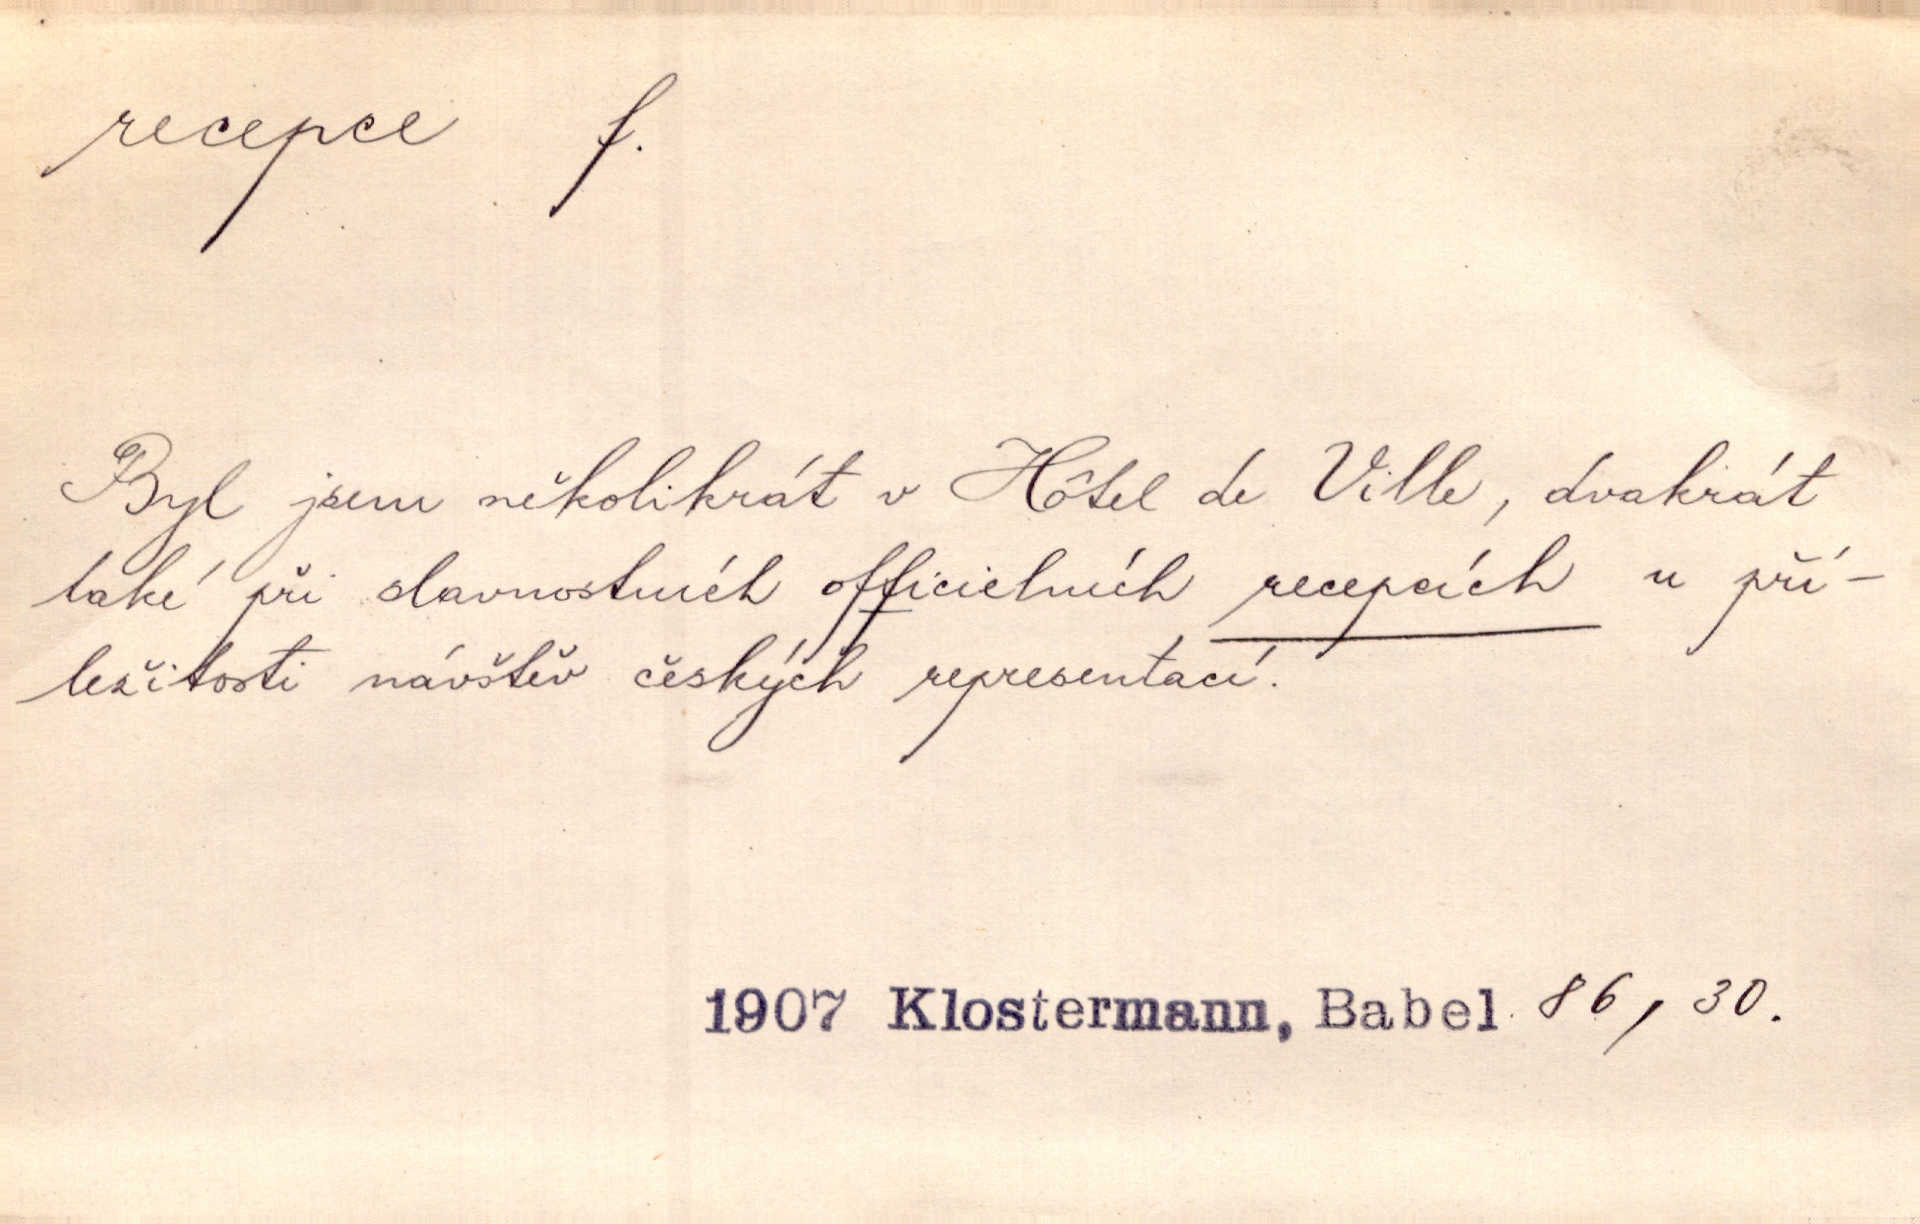 recepce f.
Byl jsem několikrát v Hôtel de Ville, dvakrát
také při slavnostních officielních recepcích u pří-
ležitosti návštěv českých representací.
1907 Klostermann, Babel 86, 30.